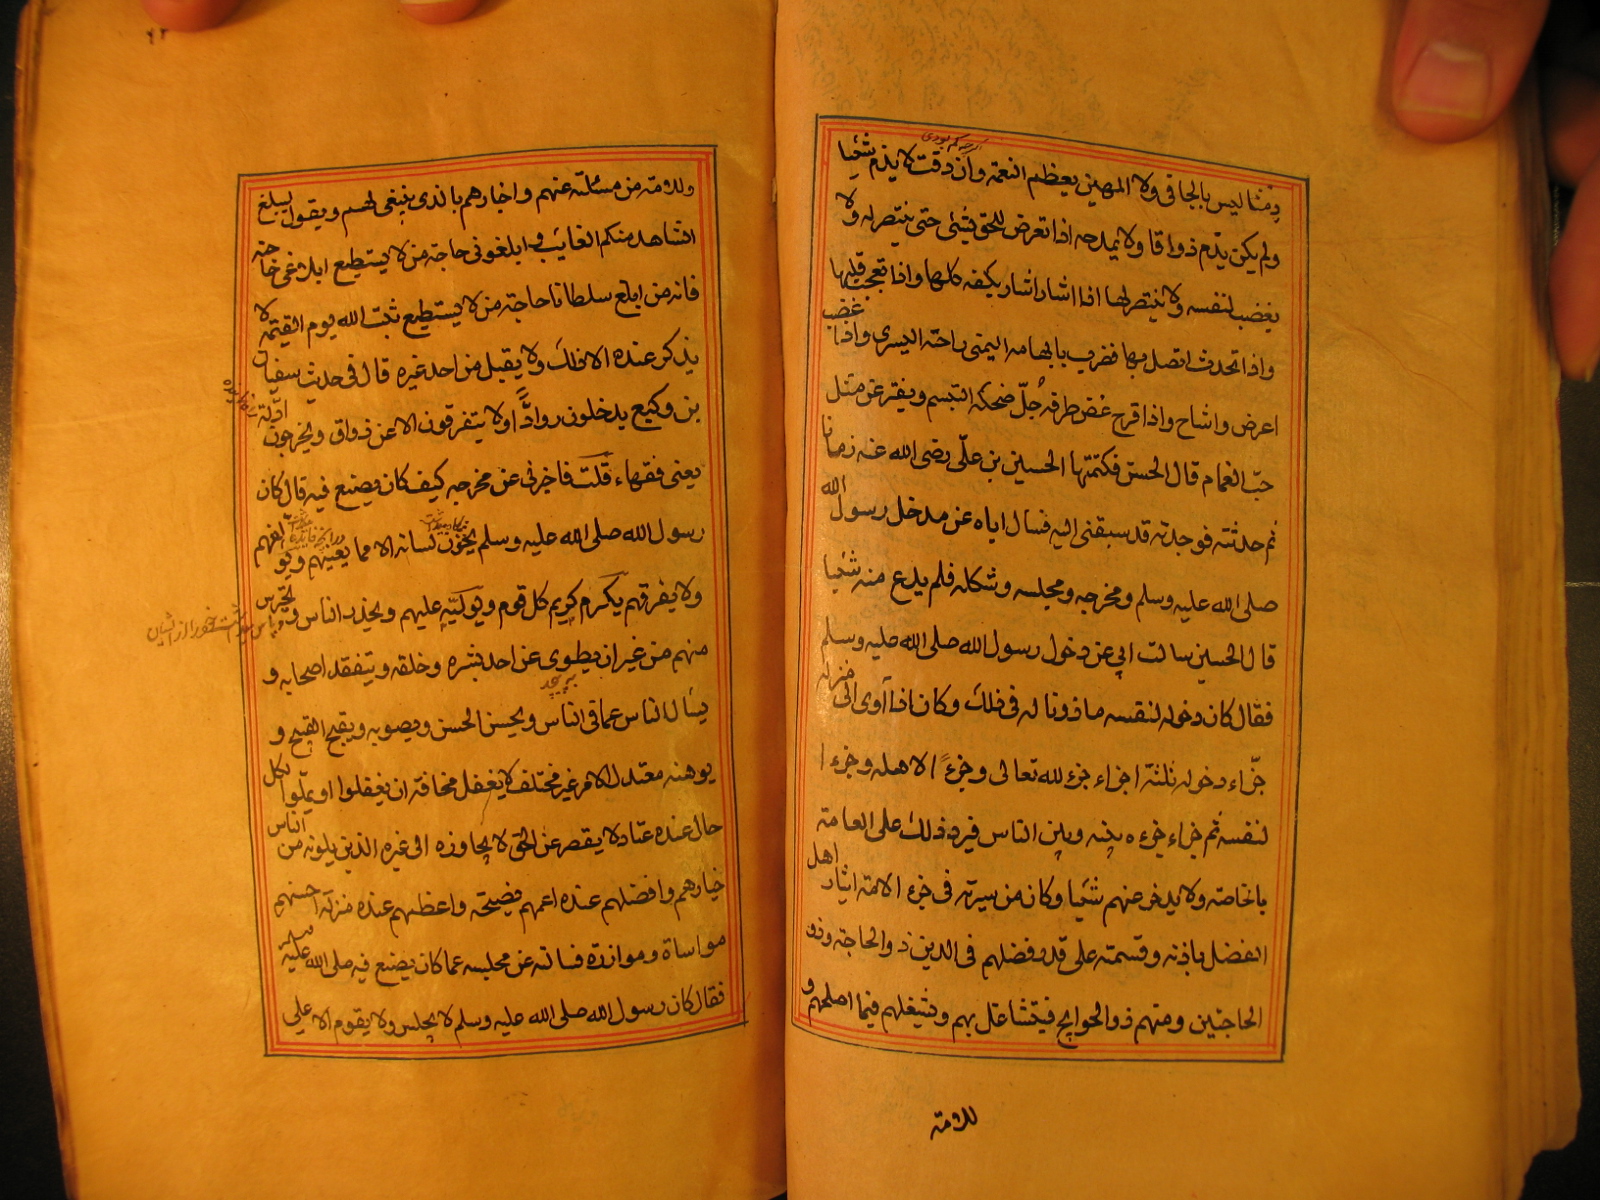 دمثا ليس بالجافي ولا المهين يعظم النعمة وان دقت لا يذم شيئا
ولم يكن يذم ذواقا ولا يمدحه اذا تعرض للحق بشئ حتى ينتصر له ولا
يغضب لنفسه ولا ينتصر لها اذا اشار اشار بكفه كلها واذا تعجب قلبها
واذا تحدث اتصل بها فضرب بابهامه اليمنى راحته اليسرى واذا غضب
اعرض واشاح واذا فرح غض طرفه جلّ ضحكه التبسم ويفتر عن مثل
حبّ الغمام قال الحسن فكتمتها الحسين بن علّي رضى الله عنه زمانا
ثم حدثته فوجدته قد سبقنى اليه فسال اباه عن مدخل رسول الله
صلى الله عليه وسلم ومخرجه ومجلسه وشكله فلم يدع منه شيئا
قال الحسين سالت ابي عن دخول رسول الله صلى الله عليه وسلم
فقال كان دخوله لنفسه ماذونا له فى ذلك وكان اذا آوى الى منزله
جزّاء دخوله ثلثة اجزاء جزء لله تعالى وجزءً الاهله وجزء ا
لنفسه ثم جزاء جزءه بينه وبين الناس فيرد ذلك على العامة
بالخاصة ولا يدخر عنهم شيئا وكان من سيرته فى جزء الامة ايثار اهل
الفضل باذنه وقسمته على قدر فضلهم فى الدين ذوالحاجة وذو
الحاجتين ومنهم ذوالحوايج فيتشاغل بهم ويشغلهم فيما اصلحهم و
للامة
٩٢
وللامة من مسئلته عنهم واخبارهم بالذى ينبغى لهم ويقول ليبلغ
الشاهد منكم الغايب وابلغونى حاجة من لا يستطيع ابلاغى حاجته
فانه من ابلغ سلطانا حاجة من لا يستطيع ثبت الله يوم القيمة لا
يذكر عنده الا ذلك ولا يقبل من احد غيره قال فى حديث سفيان
بن وكيع يدخلون روادًّا ولا يتفرقون الا عن ذواق ويخرجون ادلة
يعنى فقهاء قلت فاخبرنى عن مخرجه كيف كان يصنع فيه قال كان
رسول الله صلى الله عليه وسلم يخزن لسانه الا مما يعنيهم ويؤلفهم
ولا يفرقهم يكرم كريم كل قوم ويوليه عليهم ويحذر الناس ويحترس
منهم من غير ان يطوى عن احد بشره وخلقه ويتفقد اصحابه و
يسأل الناس عما فى الناس ويحسن الحسن ويصوبه ويقبح القبيح و
يوهنه معتدل الامر غير مختلف لا يغفل مخافة ان يغفلوا او يملّوا لكل
حال عنده عتاد لا يقصر عن الحق لا يجاوزه الى غيره الذين يلونه من الناس
خيارهم وافضلهم عنده اعمهم نصيحة واعظمهم عنده منزلة احسنهم
مواساة وموازرة فسالته عن مجلسه عما كان يصنع فيه صلى الله عليه
فقال كان رسول الله صلى الله عليه وسلم لا يجلس ولا يقوم الا على